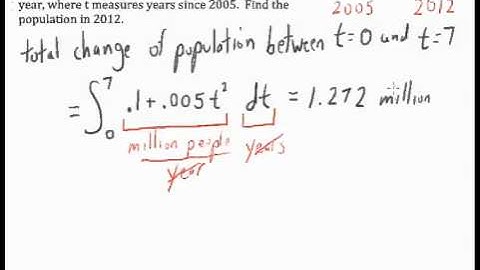 year, where t measures years since 2005. Find the
population in 2012.
2005 2012
total change of population between t=0 and t=7
= ∫₀⁷ .1 + .005t² dt = 1.272 million
million people years
year